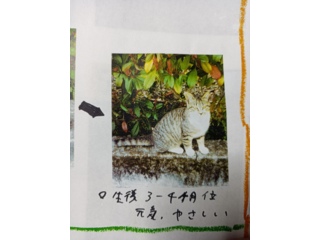 ♂ 生後 3〜4ヶ月位
元気、やさしい